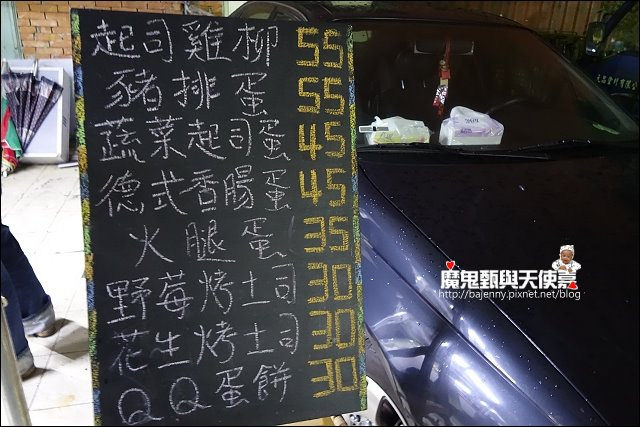 起司雞柳 55
豬排蛋 55
蔬菜起司蛋 45
德式香腸蛋 45
火腿蛋 35
野莓烤土司 30
花生烤土司 30
QQ蛋餅 30
魔鬼甄與天使嘉
http://bajenny.pixnet.net/blog